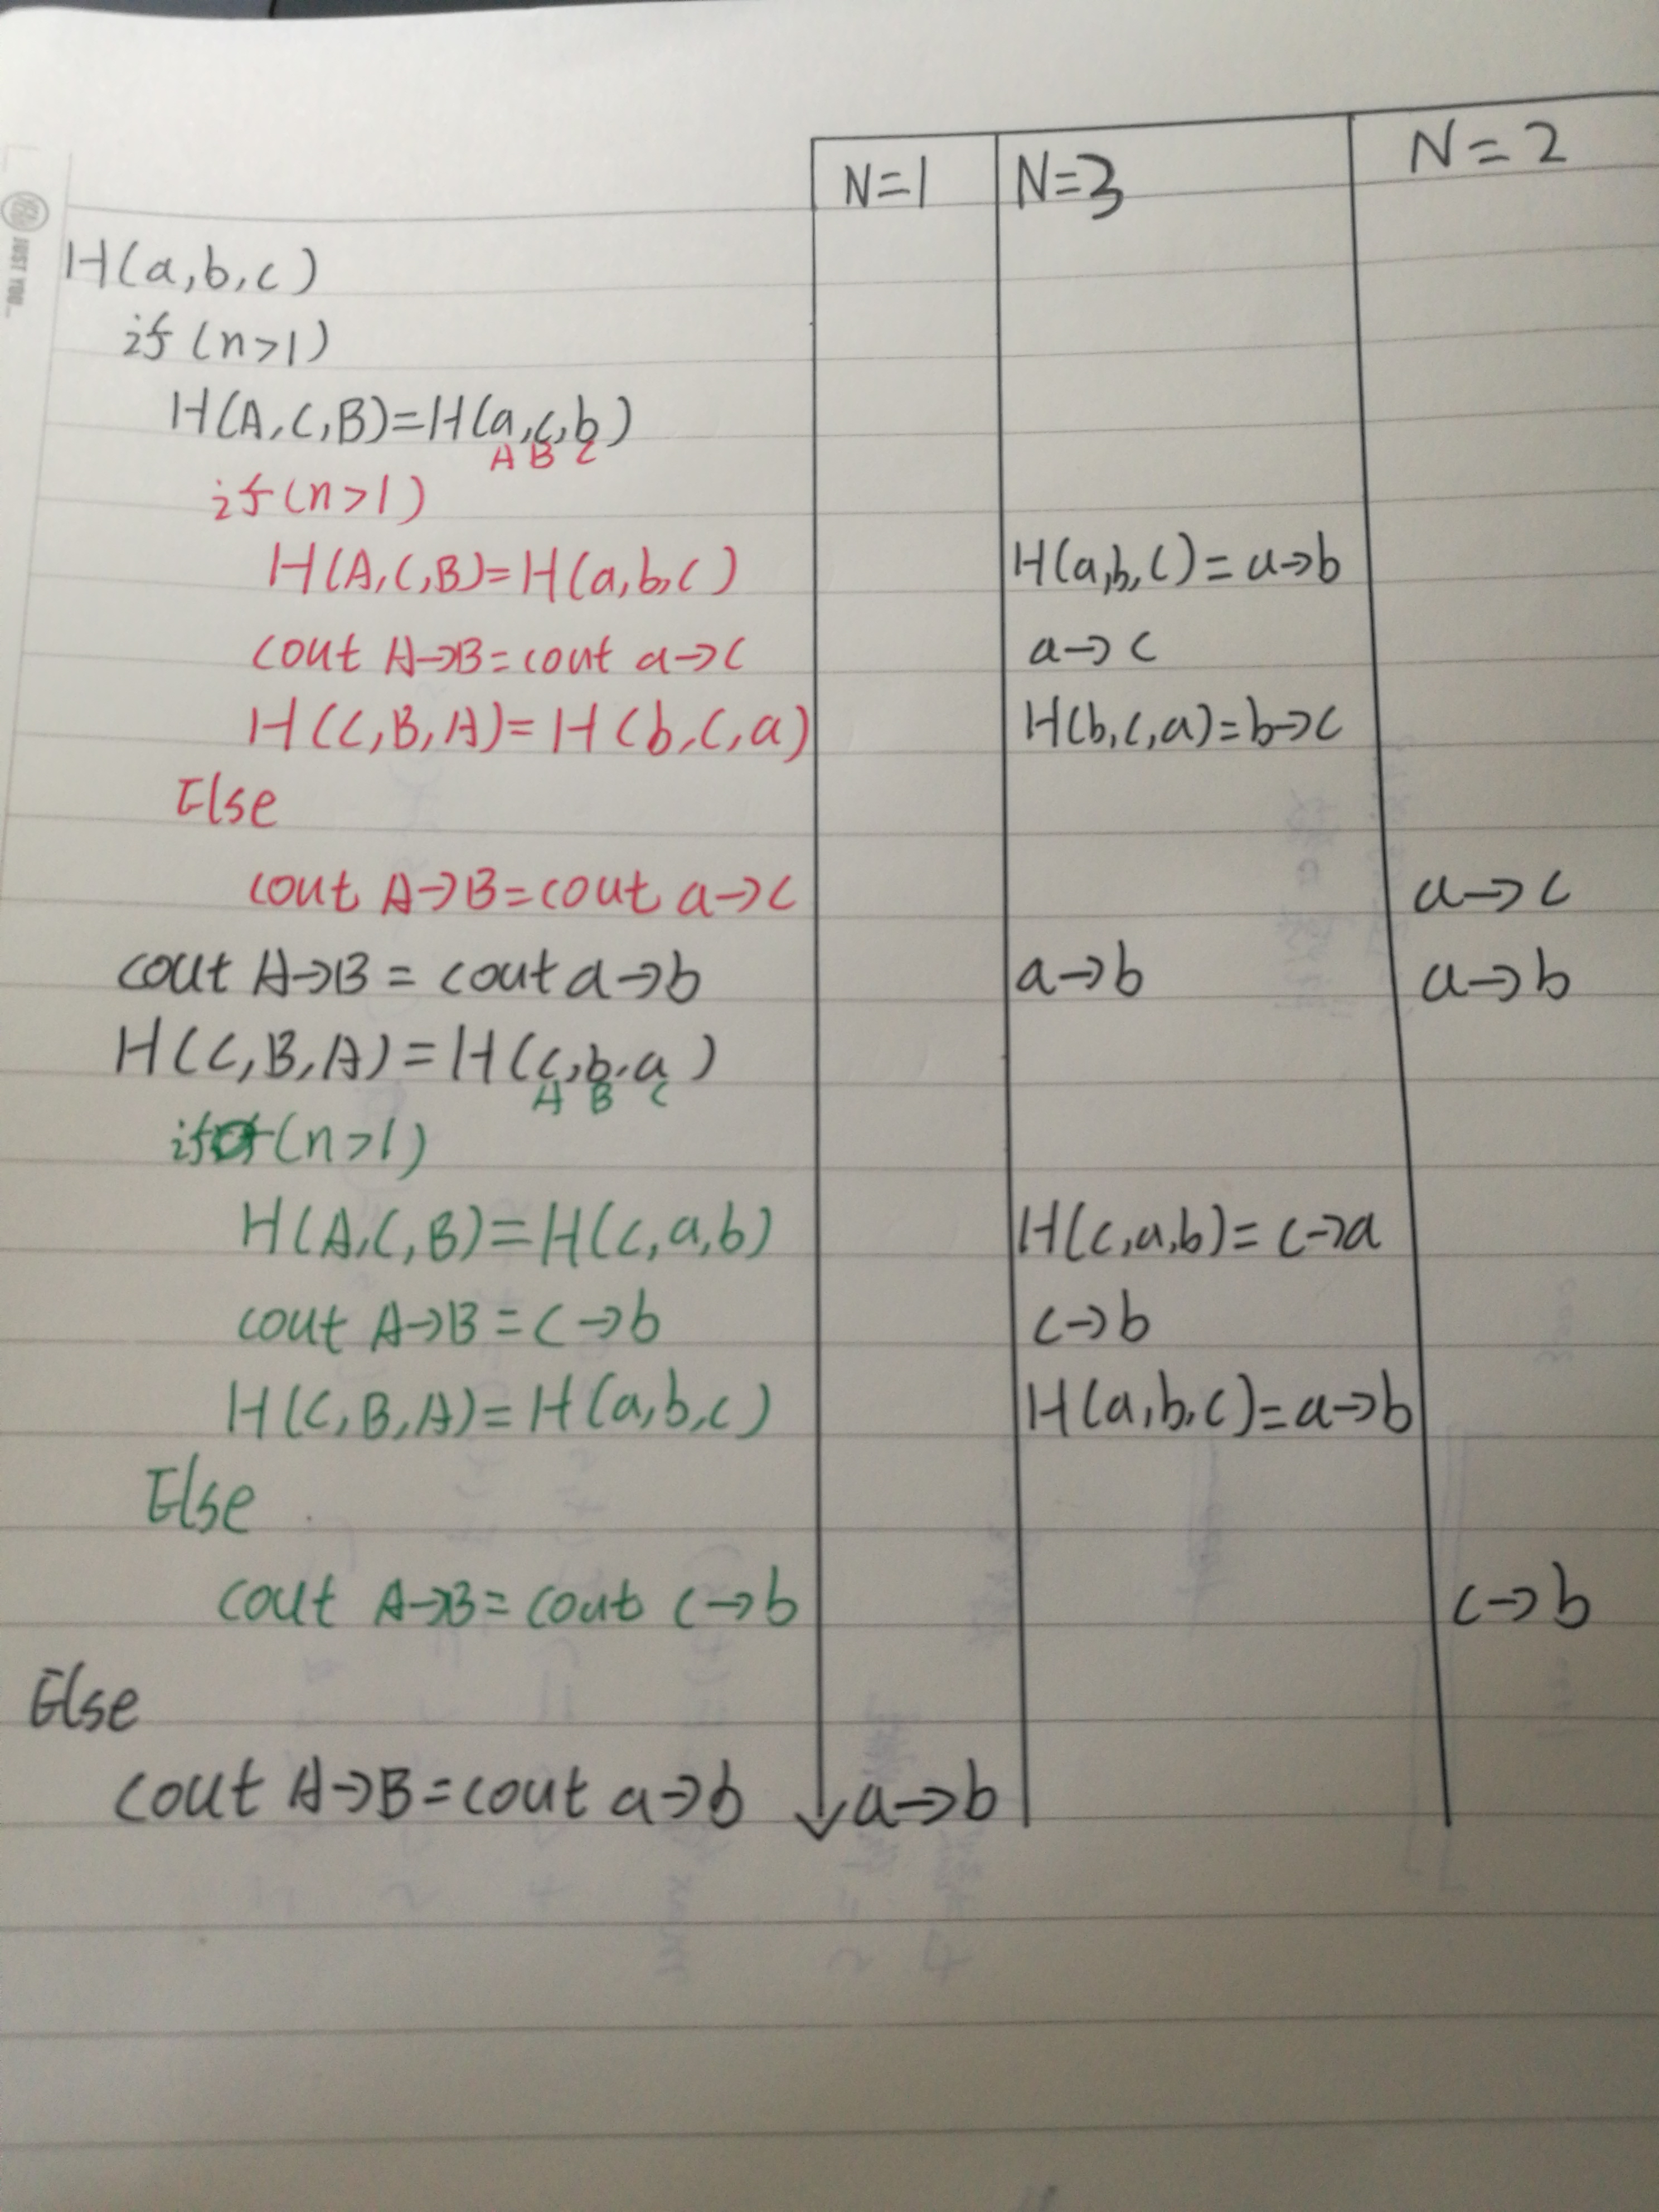 N=1 N=3 N=2
H(a,b,c)
if(n>1)
H(A,C,B)=H(a,c,b)
A B C
if(n>1)
H(A,C,B)=H(a,b,c) H(a,b,c)=a→b
cout A→B=cout a→c a→c
H(C,B,A)=H(b,c,a) H(b,c,a)=b→c
Else
cout A→B=cout a→c a→c
cout A→B=cout a→b a→b a→b
H(C,B,A)=H(c,b,a)
A B C
if(n>1)
H(A,C,B)=H(c,a,b) H(c,a,b)=c→a
cout A→B=c→b c→b
H(C,B,A)=H(a,b,c) H(a,b,c)=a→b
Else
cout A→B=cout c→b c→b
Else
cout A→B=cout a→b a→b
JUST YOU...